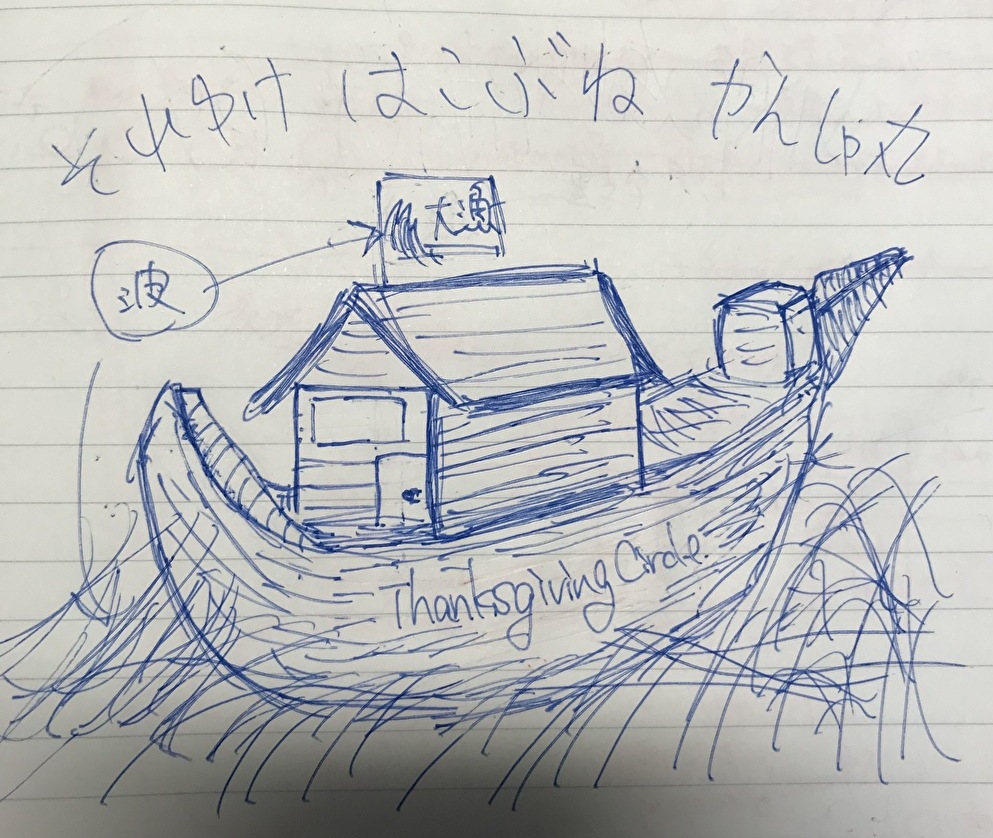 それゆけ はこぶね かんしゃ丸
大漁
波
Thanksgiving Circle